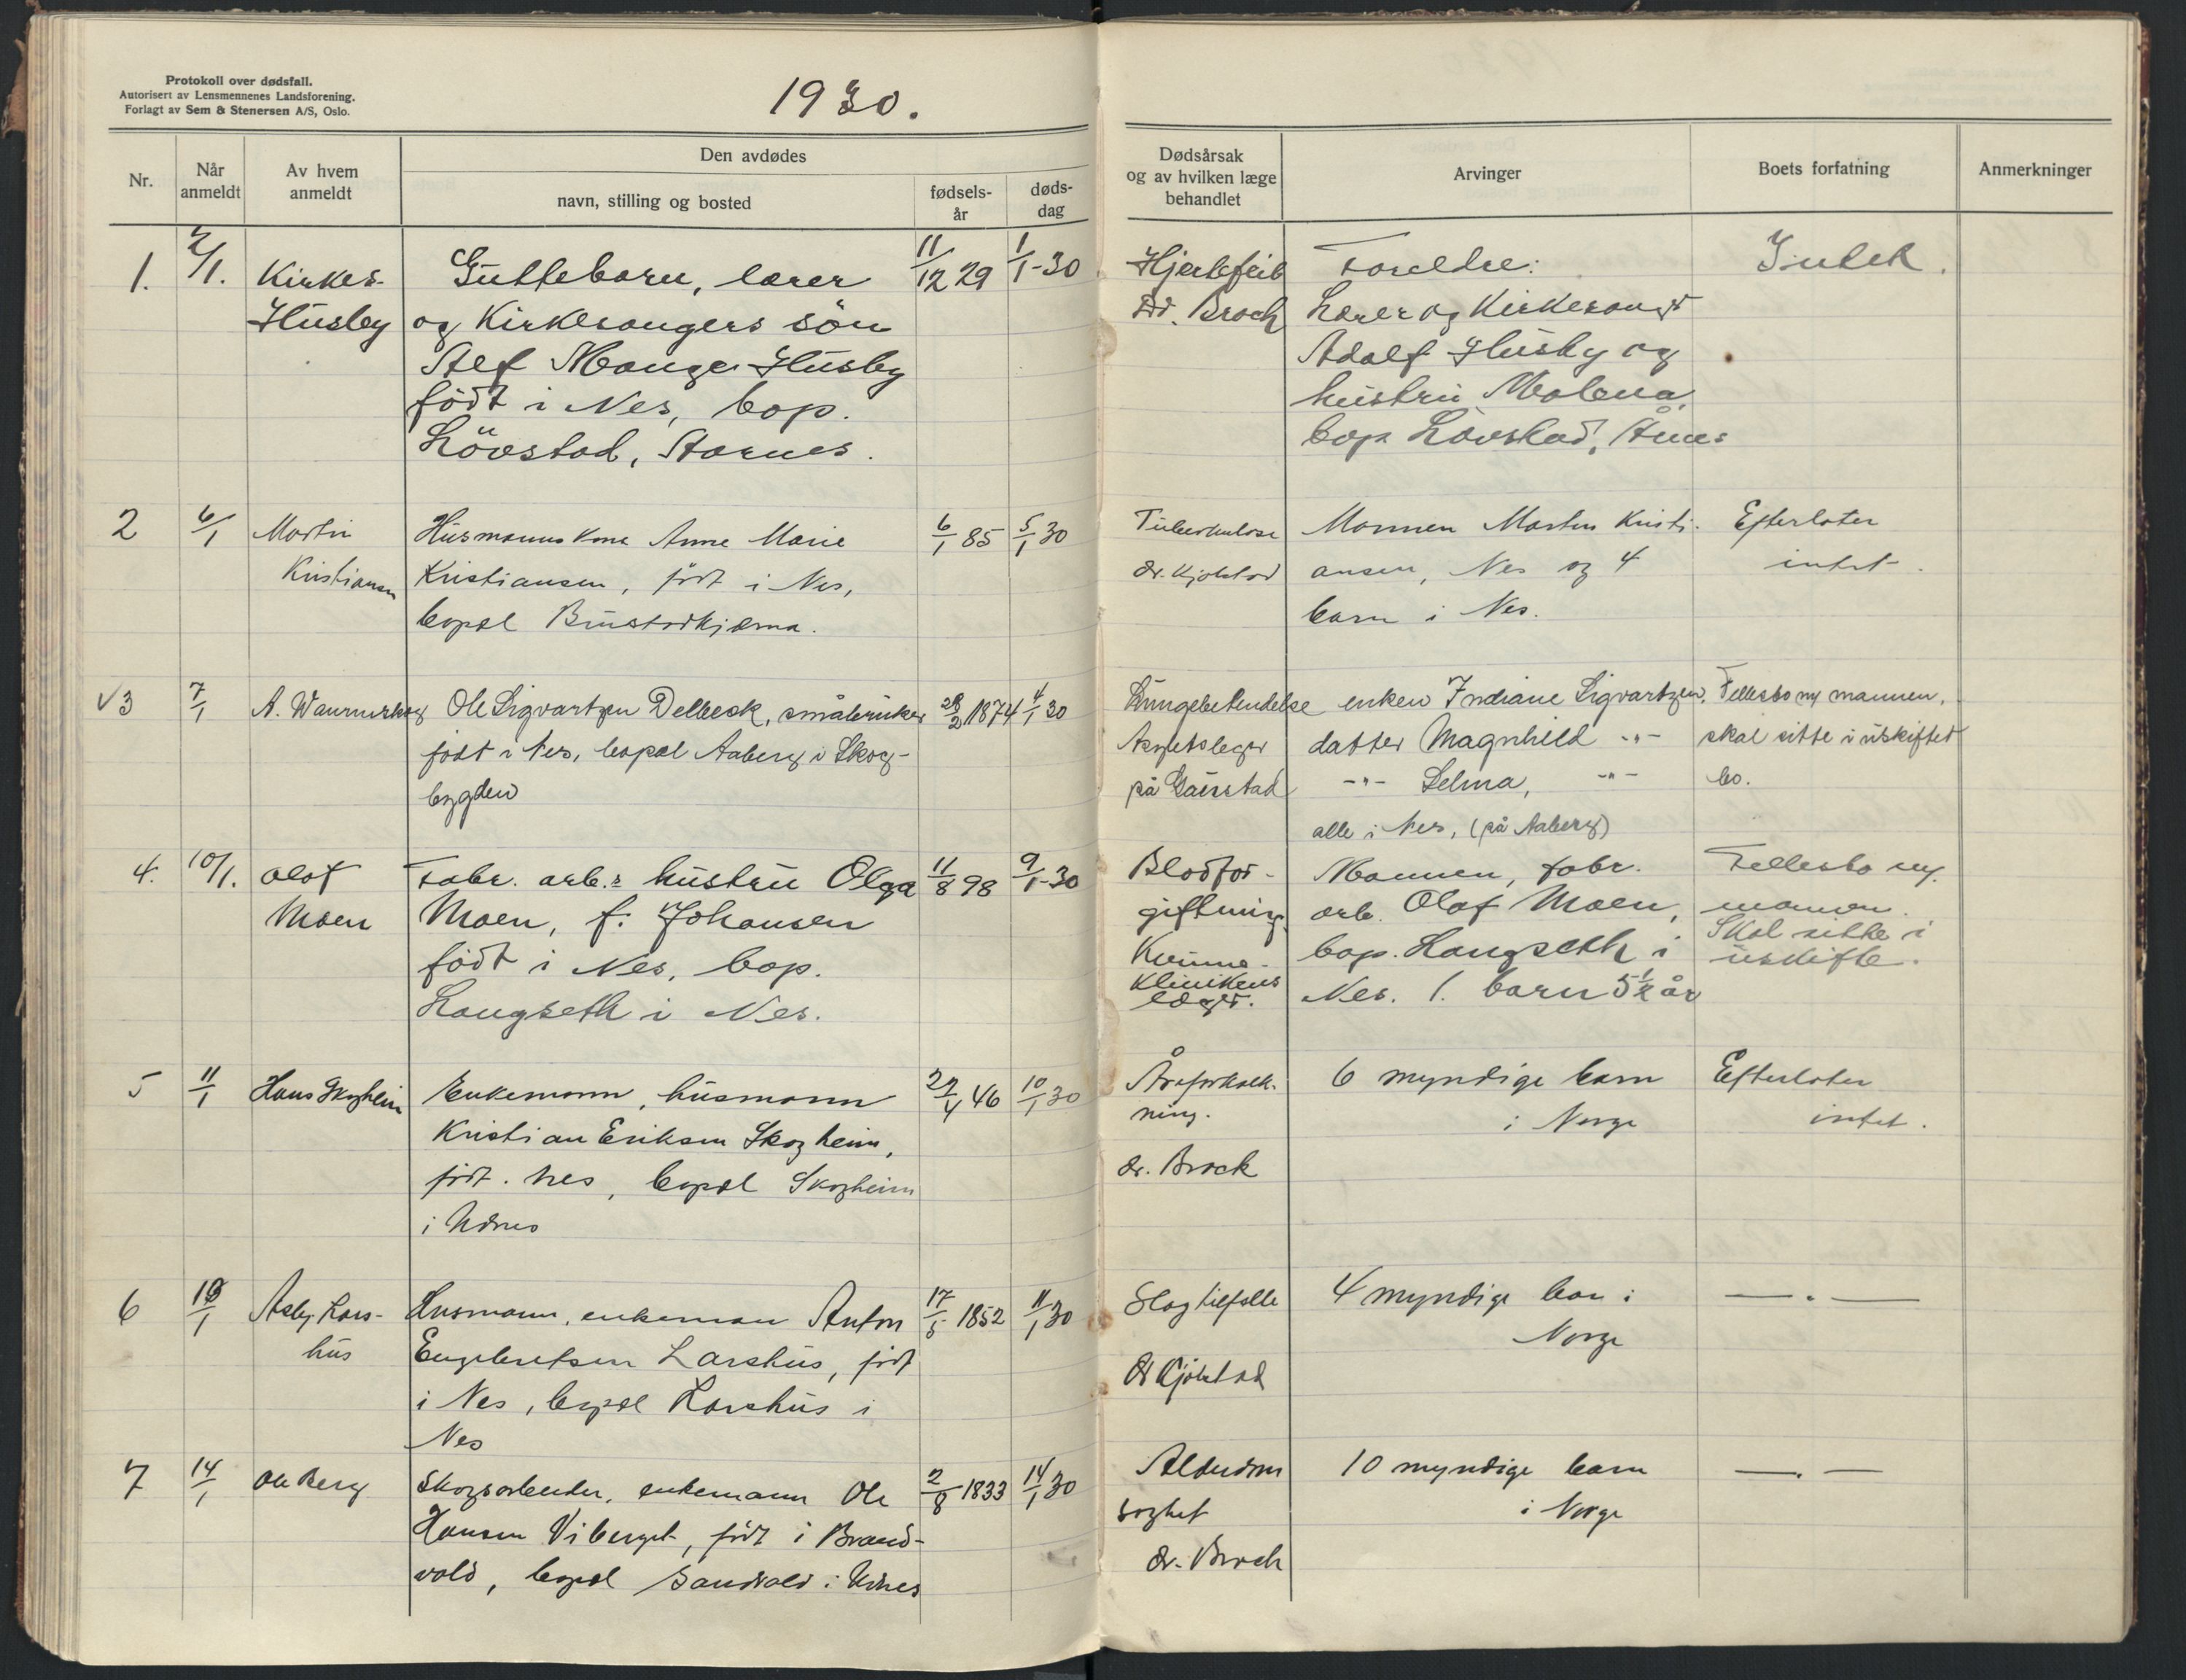 Protokoll over dødsfall.
Autorisert av Lensmennenes Landsforening.
Forlagt av Sem & Stenersen A/S, Oslo.
1930.
Nr.
Når anmeldt
Av hvem anmeldt
Den avdødes
navn, stilling og bosted
fødsels-år
døds-dag
Dødsårsak og av hvilken læge behandlet
Arvinger
Boets forfatning
Anmerkninger
1. 2/1. Kirkes. Guttebarn, lærer 11/12 29 1/1-30 Hjertefeil Foreldre: Intet.
Husby og Kirkesangers sön Dr. Broch Lærer og Kirkesangr
Alf Mange Husby Adolf Husby og
födt i Nes, bop. hustru Molena
Lövstad, Aarnes. bop. Lövstad, Årnes
2 6/1 Martin Husmannskone Anne Marie 6/1 85 5/1 30 Tuberkulose Mannen Martin Kristi- Efterlater
Kristiansen Kristiansen, født i Nes, dr. Kjølstad ansen, Nes og 4 intet.
bopæl Brustadkjærna. barn i Nes.
√3 7/1 A. Ole Sigvartzen Delbeck, småbruker 28/2 1874 4/1 30 Lungebetendelse enken Indiane Sigvartzen, Fellesbo m/ mannen,
født i Nes, bopæl Aaberg i Skog- datter Magnhild -"- skal sitte i uskiftet
bygden på Gaustad -"- Selma, -"- bo.
alle i Nes, (på Aaberg)
4. 10/1. Olaf Fabr. arb.s hustru Olga 11/8 98 9/1-30 Blodfor- Mannen, fabr. Fellesbo m/.
Moen Moen, f. Johansen giftning arb. Olaf Moen, mannen.
födt i Nes, bop. Kvinne- bop. Langseth i Skal sitte i
Langseth i Nes. klinikens Nes. 1. barn 5½ år uskifte.
læger.
5 11/1 Hans Skogheim Enkemann, husmann 29/4 46 10/1 30 Åreforkalk- 6 myndige barn Efterlater
Kristian Eriksen Skogheim, ning. i Norge intet.
født. Nes, bopæl Skogheim dr. Brock
i Udnes
6 13/1 Asbj. Lars- Husmann, enkeman Anton 17/5 1852 11/1 30 Slagtilfelle 4 myndige barn i —"—
hus Engebretsen Larshus, født Norge
i Nes, bopæl Larshus i dr Kjølstad
Nes
7 14/1 Ole Berg Skogsarbeider, enkemann Ole 2/8 1833 14/1 30 Alderdom 10 myndige barn —"—
Hansen Viberget, født i Brand- svghet i Norge
vold, bopæl Sandvold i Udnes dr. Broch